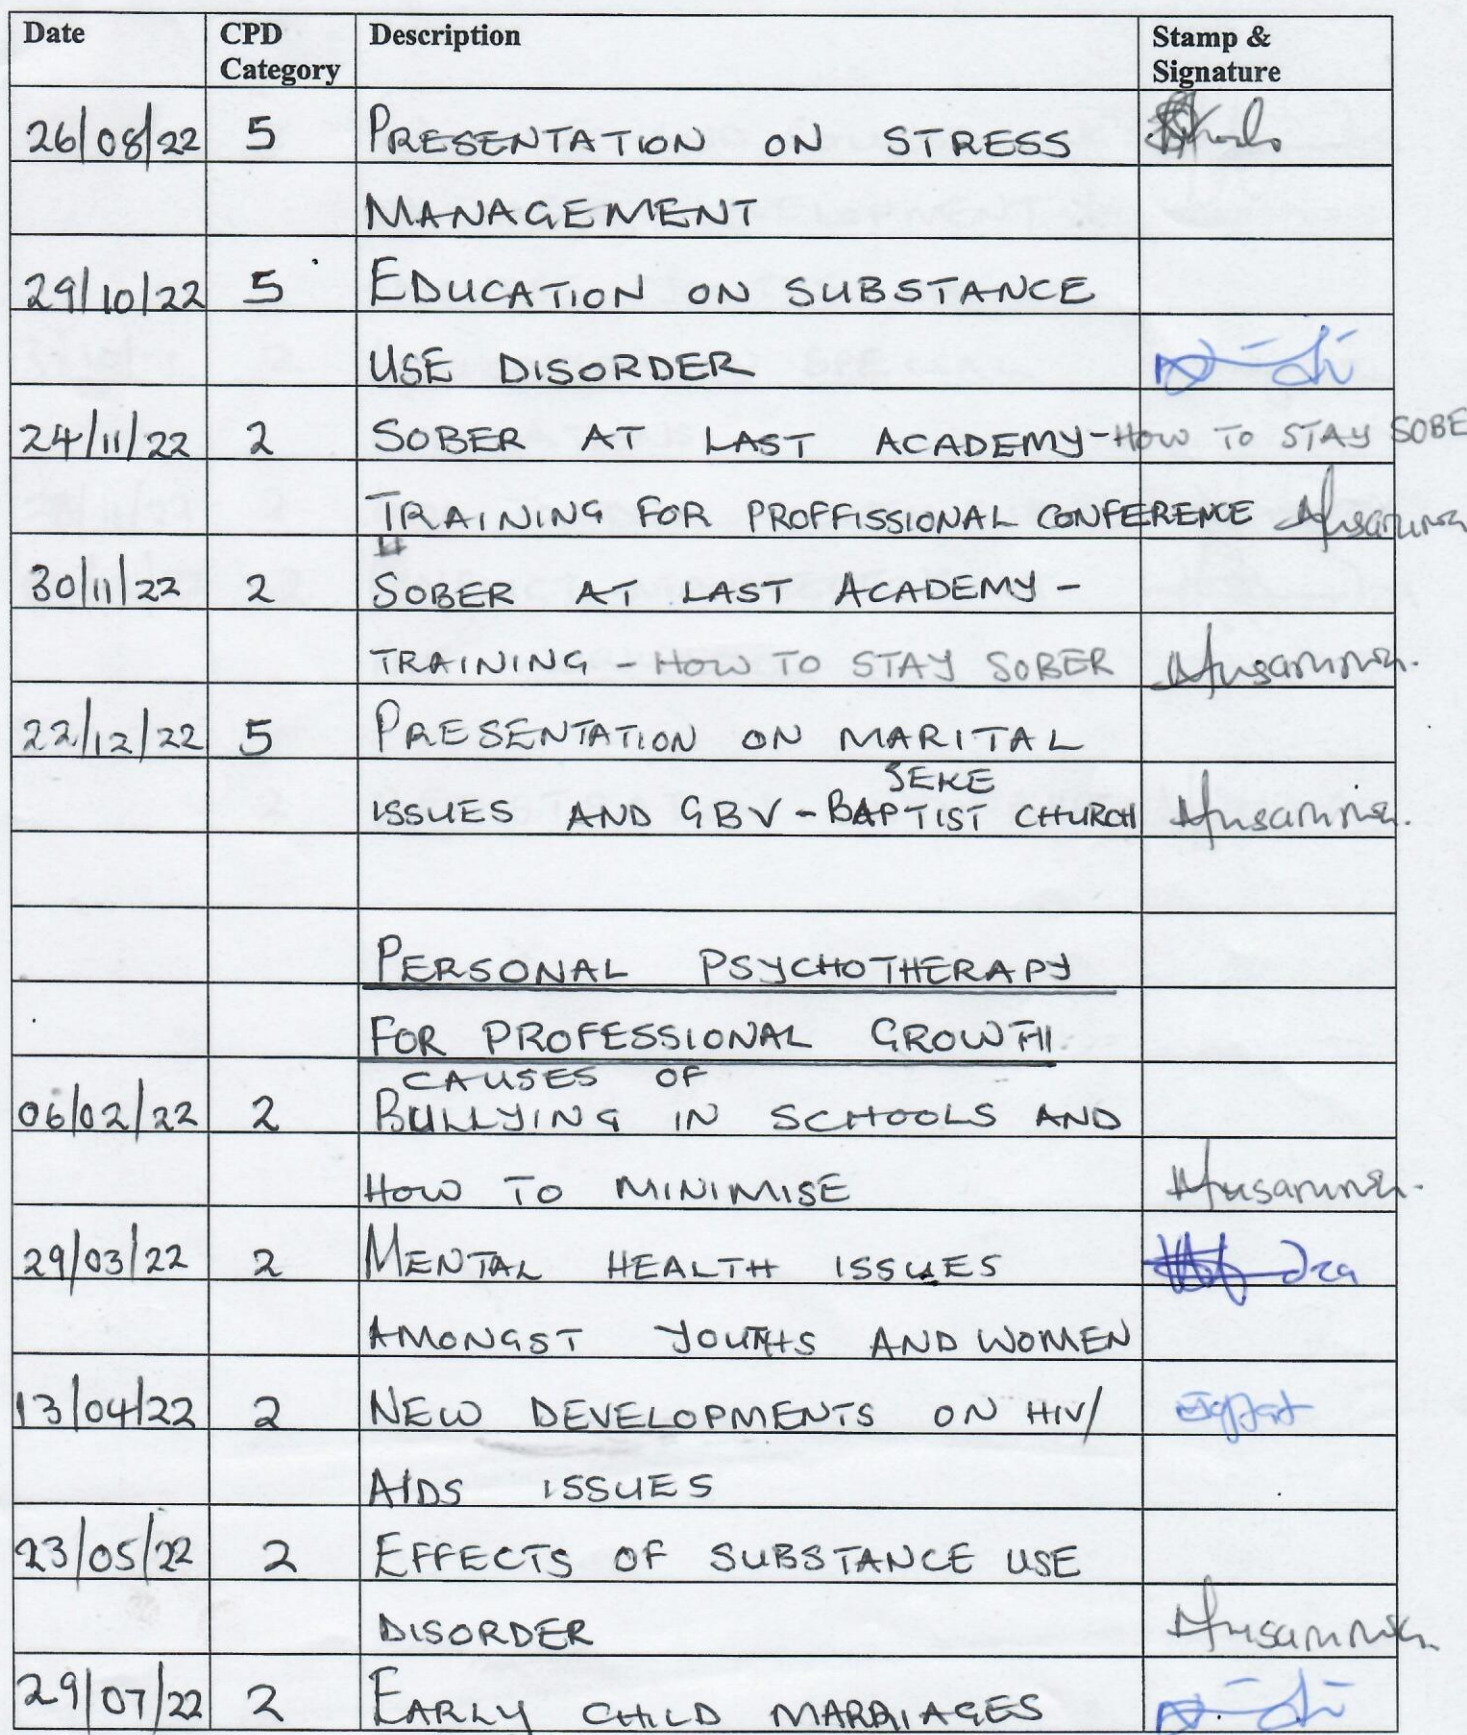 Date CPD Category Description Stamp & Signature
26/08/22 5 PRESENTATION ON STRESS
MANAGEMENT
29/10/22 5 EDUCATION ON SUBSTANCE
USE DISORDER
24/11/22 2 SOBER AT LAST ACADEMY-HOW TO STAY SOBE
TRAINING FOR PROFFISSIONAL CONFERENCE
30/11/22 2 SOBER AT LAST ACADEMY -
TRAINING - HOW TO STAY SOBER
22/12/22 5 PRESENTATION ON MARITAL
SEKE
ISSUES AND GBV - BAPTIST CHURCH
PERSONAL PSYCHOTHERAPY
FOR PROFESSIONAL GROWTH.
CAUSES OF
06/02/22 2 BULLYING IN SCHOOLS AND
HOW TO MINIMISE
29/03/22 2 MENTAL HEALTH ISSUES
AMONGST YOUTHS AND WOMEN
13/04/22 2 NEW DEVELOPMENTS ON HIV/
AIDS ISSUES
23/05/22 2 EFFECTS OF SUBSTANCE USE
DISORDER
29/07/22 2 EARLY CHILD MARRIAGES